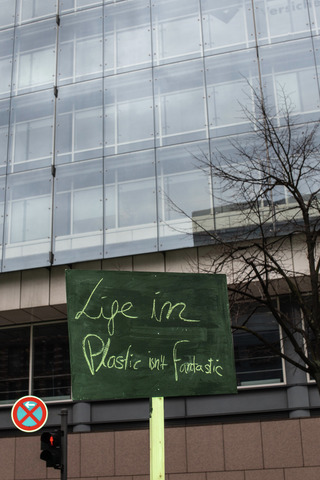 Life in
Plastic isn't Fantastic